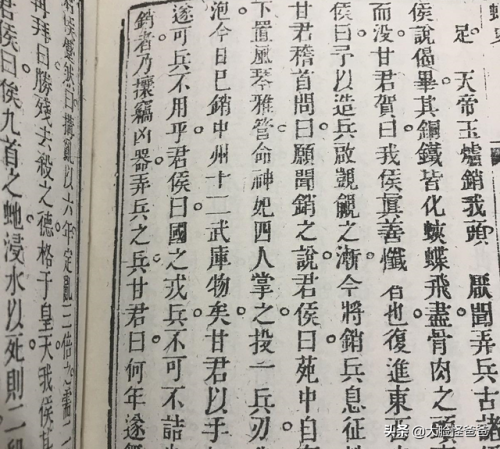 足 天帝玉爐銷我頭 厭聞弄兵古
侯說偈畢其銅鐵皆化蛺蝶飛盡骨肉之頭
而没甘君賀曰我侯眞善懺者也復進東
侯曰予以造兵啟覬覦之漸今將銷兵息征
甘君稽首問曰願聞銷之說君侯曰苑中自
下置風琴雅管命神妃四人掌之投一兵刃
泡今日已銷中州十二武庫物矣甘君以手
遂可兵不用乎君侯曰國之戎兵不可不詰
銷者乃攘竊凶器弄兵之兵甘君曰何年遂
亂以六年定亂三倍之需
再拜曰勝殘去殺之德格于皇天我侯其
君侯曰俟九首之虵浸水以死則二
头条 @大脸怪爸爸